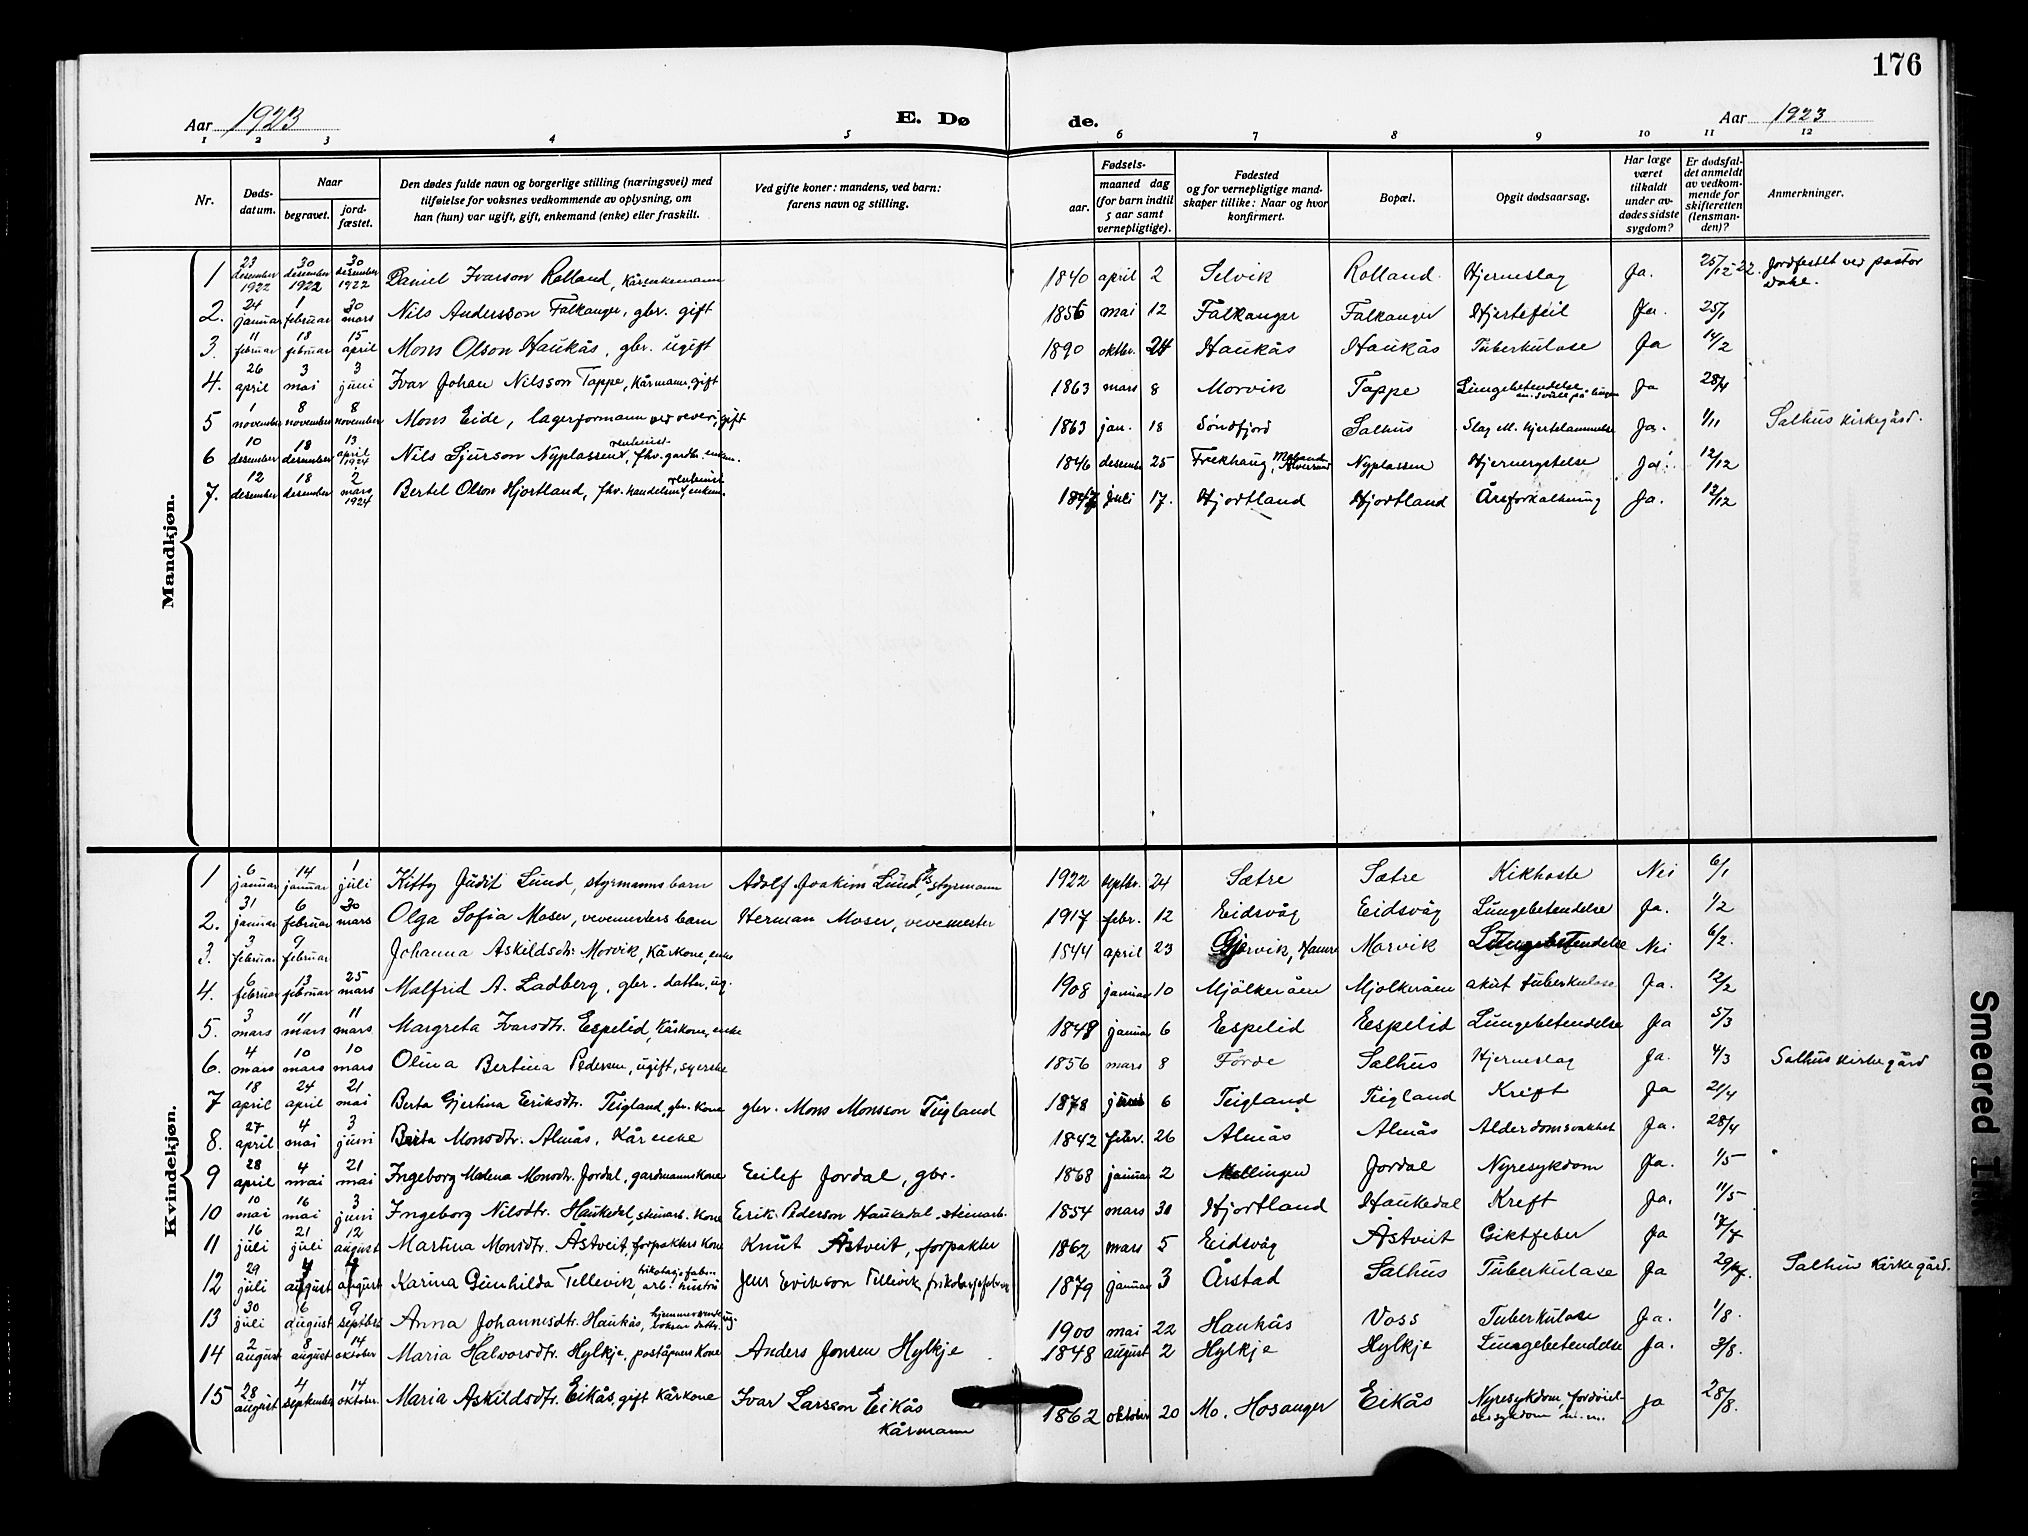 176
Aar 1923 E. Dø de. Aar 1923
1 2 3 4 5 6 7 8 9 10 11 12
Nr. | Døds-datum. | Naar begravet. | jord-fæstet. | Den dødes fulde navn og borgerlige stilling (næringsvei) med tilføielse for voksnes vedkommende av oplysning, om han (hun) var ugift, gift, enkemand (enke) eller fraskilt. | Ved gifte koner: mandens, ved barn: farens navn og stilling. | Fødsels- aar. | maaned | dag (for barn indtil 5 aar samt vernepligtige). | Fødested og for vernepligtige mand-skaper tillike: Naar og hvor konfirmert. | Bopæl. | Opgit dødsaarsag. | Har læge været tilkaldt under av-dødes sidste sygdom? | Er dødsfal-det anmeldt av vedkom-mende for skifteretten (lensman-den)? | Anmerkninger.
Mandkjøn.
1 | 23 desember 1922 | 30 desember 1922 | 30 desember 1922 | Daniel Ivarson Rolland, Kårenkemann | 1840 | april | 2 | Selvik | Rolland. | Hjerneslag | Ja. | 25/12-22. | Jordfestet ved pastor Dahe.
2. | 24 januar | 1 februar | 30 mars | Nils Andersson Falkanger, gbr. gift | 1856 | mai | 12 | Falkanger | Falkanger | Hjertefeil | Ja. | 25/1
3. | 11 februar | 18 februar | 15 april | Mons Olson Haukås, gbr. ugift | 1890 | oktbr. | 24 | Haukås | Haukås | Tuberkulose | Ja | 14/2
4. | 26 april | 3 mai | 3 juni | Ivar Johan Nilsson Tappe, Kårmann, gift | 1863 | mars | 8 | Morvik | Tappe | Lungebetendelse | Ja | 28/4
5 | 1 november | 8 november | 8 november | Mons Eide, lagerformann ved veveri, gift | 1863 | jan. | 18 | Søndfjord | Salhus | Slag m. Hjertelammelse | Ja. | 1/11 | Salhus Kirkegård.
6 | 10 desember | 18 desember | 13 april 1924 | Nils Sjurson Nyplassen, fhv. gardbr. enkem. | 1846 | desembr | 25 | Frekhaug, Meland Alversund | Nyplassen | Hjernerystelse | Ja. | 12/12
7. | 12 desember | 18 desember | 2 mars 1924 | Bertel Olson Hjortland, fhv. handelsm., enkem. | 1847 | juli | 17. | Hjortland | Hjortland | Åreforkalkning | Ja. | 12/12
Kvindekjøn.
1 | 6 januar | 14 januar | 1 juli | Kitty Judit Lund, styrmanns barn | Adolf Joakim Lund, styrmann | 1922 | septbr. | 24 | Sætre | Sætre | Kikhoste | Nei | 6/1
2. | 31 januar | 6 februar | 30 mars | Olga Sofia Moser, vevemesters barn | Herman Moser, vevemester | 1917 | febr. | 12 | Eidsvåg | Eidsvåg | Lungebetendelse | Ja. | 1/2
3. | 3 februar | 9 februar | Johanna Askildsdtr. Morvik, Kårkone, enke | 1844 | april | 23 | Gjervik, Hamre | Morvik | Lungebetendelse | Nei | 6/2.
4. | 6 februar | 13 februar | 25 mars | Malfrid A. Ladberg, gbr. datter, ug. | 1908 | januar | 10 | Mjølkeråen | Mjølkeråen | akut tuberkulose | Ja. | 12/2
5. | 3 mars | 11 mars | 11 mars | Margreta Ivarsdtr. Espelid, Kårkone, enke | 1848 | januar | 6 | Espelid | Espelid | Lungebetendelse | Ja | 5/3
6. | 4 mars | 10 mars | 10 mars | Olina Bertina Pedersen, ugift, syerske | 1856 | mars | 8 | Førde | Salhus | Hjerneslag | Ja. | 4/3 | Salhus Kirkegård
7 | 18 april | 24 april | 21 mai | Berta Gjertina Eriksdtr. Teigland, gbr. kone | gbr. Mons Monsson Teigland | 1878 | juni | 6 | Teigland | Teigland | Kreft | Ja | 21/4
8. | 27 april | 4 mai | 3 juni | Berta Monsdtr. Almås, Kårenke | 1842 | febr. | 26 | Almås | Almås | Alderdomsvakhet | Ja. | 28/4
9 | 28 april | 4 mai | 21 mai | Ingeborg Malena Monsdtr. Jordal, gardmannskone | Eilef Jordal, gbr. | 1868 | januar | 2 | Mellingen | Jordal | Nyresykdom | Ja. | 1/5
10 | 10 mai | 16 mai | 3 juni | Ingeborg Nilsdtr. Haukedal, steinarb. kone | Erik Pederson Haukedal, steinarb. | 1854 | mars | 30 | Hjortland | Haukedal | Kreft | Ja. | 11/5
11 | 16 juli | 21 juli | 12 august | Martina Monsdtr. Åstveit, forpakters kone | Knut Åstveit, forpakter | 1862 | mars | 5 | Eidsvåg | Åstveit | Giktfeber | Ja | 17/7
12 | 29 juli | 4 august | 4 august | Karina Gunhilda Tellevik, trikotasjefabr. arb. hustru | Jens Erikson Tellevik | 1879 | januar | 3 | Årstad | Salhus | Tuberkulose | Ja | 29/7. | Salhus Kirkegård.
13 | 30 juli | 6 august | 9 septbr | Anna Johannesdtr. Haukås, | 1900 | mai | 22 | Haukås | Voss | Tuberkulose | Ja. | 1/8.
14 | 2 august | 8 august | 14 oktober | Maria Halvorsdtr. Hylkje, poståpners kone | Anders Jonsen Hylkje | 1848 | august | 2 | Hylkje | Hylkje | Lungebetendelse | Ja. | 3/8.
15 | 28 august | 4 september | 14 oktober. | Maria Askildsdtr. Eikås, gift Kårkone | Ivar Larsson Eikås Kårmann | 1862 | oktober | 20 | Mo. Hosanger | Eikås | Nyresykdom, fordøiel-sessykdom m.m. | Ja | 28/8.
Smeared Ink